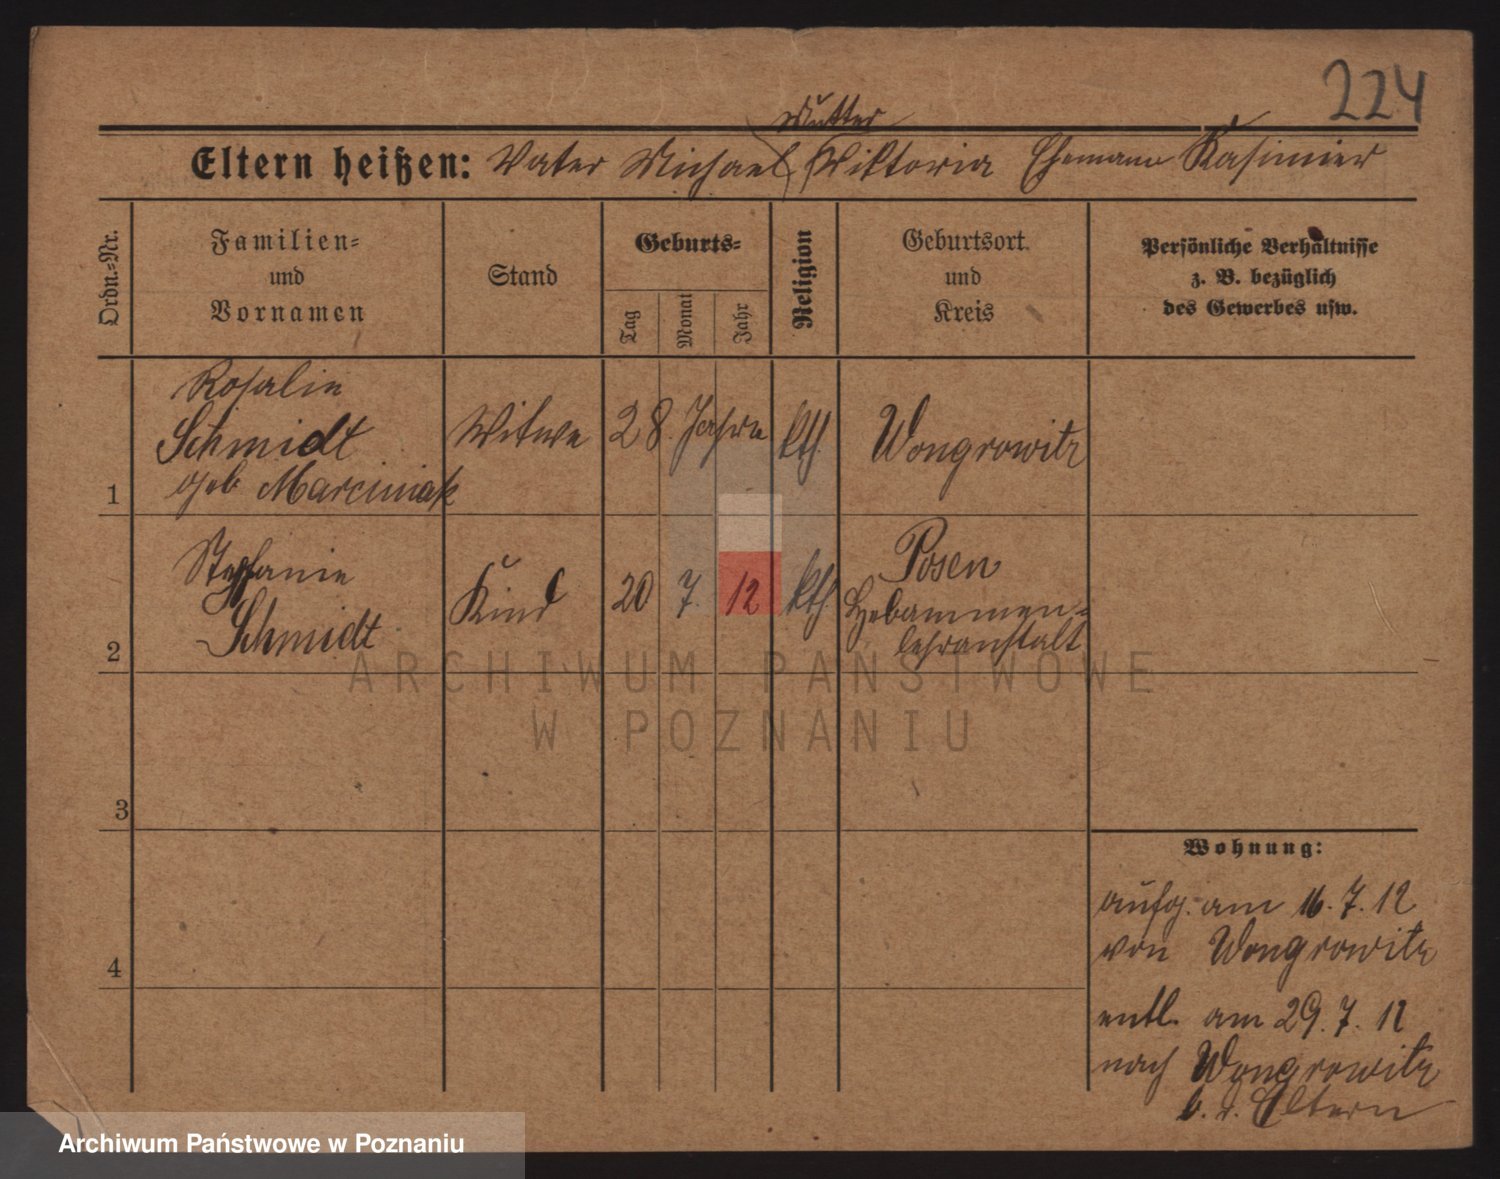 224
Mutter
Eltern heißen: Vater Michael, Viktoria Ehemann Kasimier
Ordn.-Nr.
Familien-
und
Vornamen
Stand
Geburts-
Tag
Monat
Jahr
Religion
Geburtsort
und
Kreis
Persönliche Verhältnisse
z. B. bezüglich
des Gewerbes usw.
1
Rosalie
Schmidt
geb Marciniak
Witwe
28. Jahre
kth.
Wongrowitz
2
Stephanie
Schmidt
Kind
20
7.
12
kth
Posen
Hebammen-
lehranstalt
3
4
Wohnung:
aufg. am 16. 7. 12
von Wongrowitz
entl. am 29. 7. 12
nach Wongrowitz
b. d. Eltern
ARCHIWUM PAŃSTWOWE
W POZNANIU
Archiwum Państwowe w Poznaniu